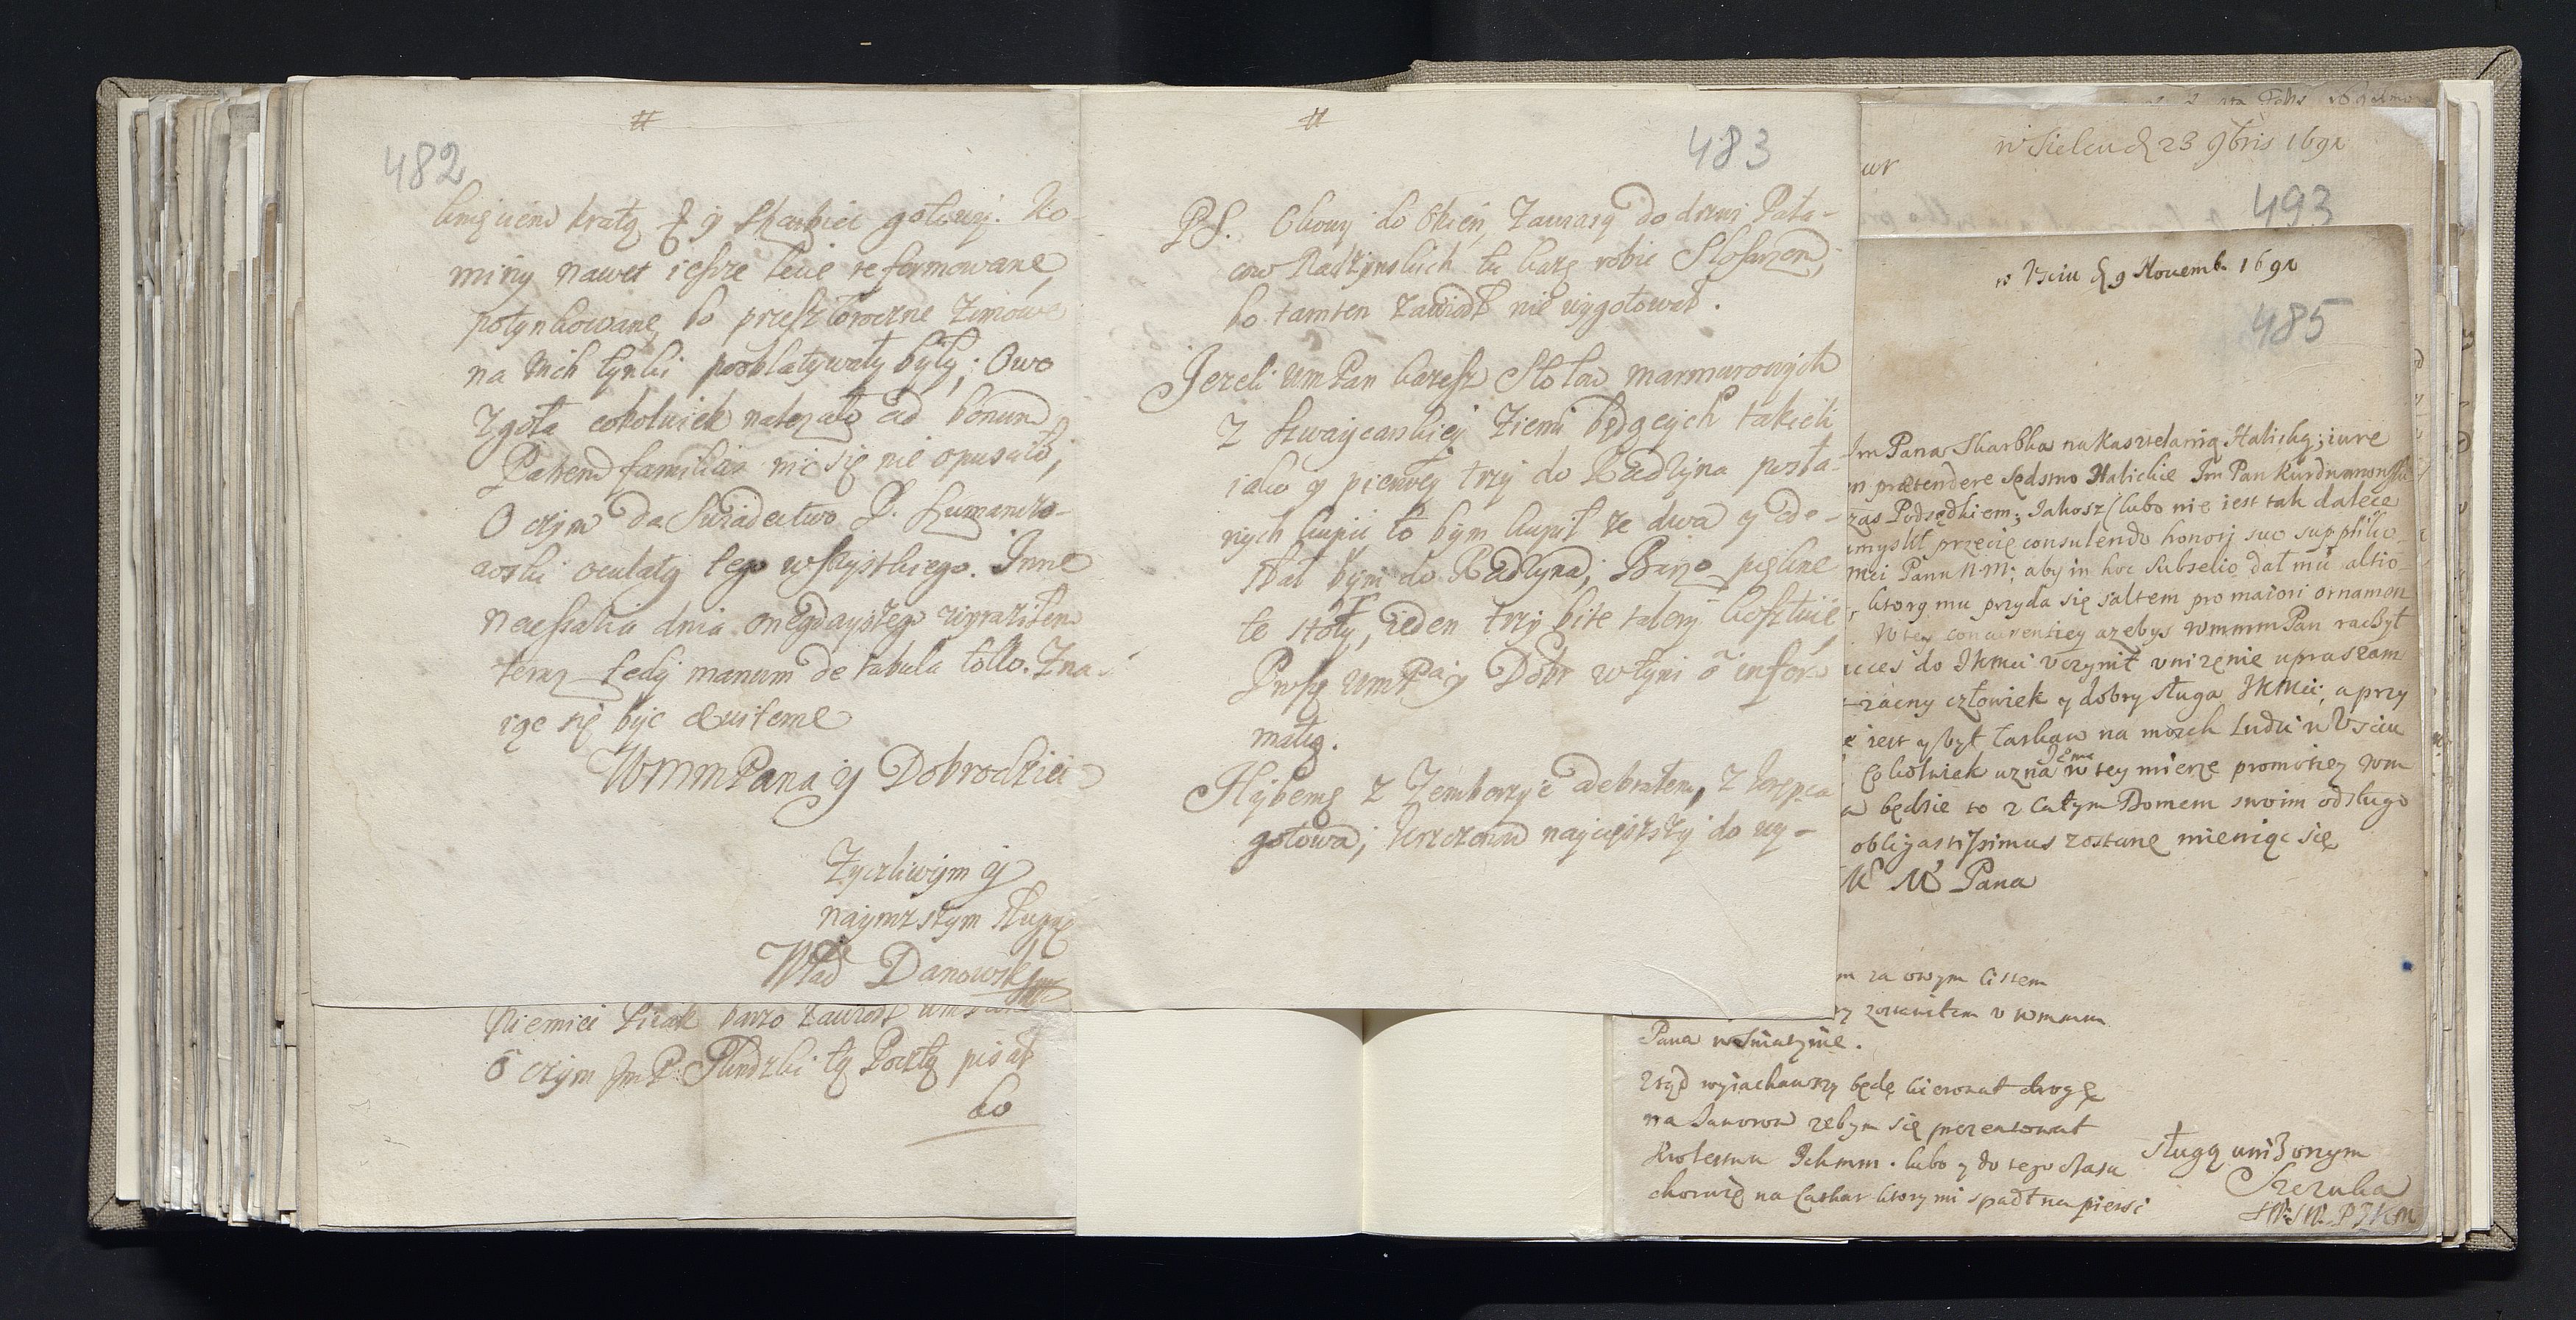 #
482
kracią kratą & y Skarbiec gotowy. Ko-
miny nawet ieszcze lecie reformowane,
potynkowane, bo przeszłoroczne zimowe
na nich tynki poobłatywały były; Owo
zgoła cokolwiek należało ad bonum
Patrem familias nic się nie opuściło,
O czym da Swiadectwo P. Szumanczo-
wski oculaty tego wszystkiego. Inne
necessaria dnia onegdayszego wyraziłem
teraz tedy manum de tabula tollo. Zna-
iąc się być exuitemc
WMMPana y Dobrodzieia
Zyczliwym y
nayniższym sługą
Wład Danowski
Niemiec Ptak barzo zawiodł WmPana
o czym Jm P. Flindzki tą Pocztą pisał
do
#
483
PS. Okowy do Okien, Zawiasy do drzwi Pała-
cow Radzynskich tu każę robic Slosarzom;
bo tamten zawiodł nie wygotował.
Jezeli WmPan każesz Stołow marmurowych
z Szwaycarskiey Ziemi będących takich
iako y pierwey trzy do Radzyna posła-
nych kupić to bym kupił ze dwa y ode-
słał bym do Radzyna; Barzo piękne
te stoły, ieden trzy bite talery kosztuie,
Proszę WmPa y Dobr w tym o infor-
matią.
Hybemę z Zemborzyc odebrałem, z Krępca
gotowa; Krzczonow naycięższy do wy-
w Sielcu d 23 9bris 1692
ur
493
w Usciu d 9 Novemb. 1692
485
Jm Pana Skarbka na Kasztelanią Halicką; iure
m prætendere Sędstwo Halickie Jm Pan Kurdwanowski
zas Podsędkiem; Jakosz (lubo nie iest tak dalece
umyslił przecię consulendo honori suo supplikо-
mci Panu N M; aby in hoc Subselio dał mu altio-
, ktory mu przyda się saltem pro maiori ornamen
W tey concurentiey azebys WMMMPan raczył
cces do JKMci uczynić unizenie upraszam
zacny człowiek y dobry sługa JKMci; a przy
e iest y był łaskaw na moich Ludzi w Usciu
Cokolwiek uzna Jemć w tey mierze promotiey Wm
a będzie to z całym Domem swoim odsługo
obligatissimus zostanę mieniąc się
M M Pana
m za owym listem
ry zostawiłem u WMMM
Pana w Sniatynie.
Ztąd wyiachawszy będę kierował drogę
na Jaworow zebym się prezentował
Krolestwu Ichmm. lubo y do tego czasu
choruię na Cathar ktory mi spadł na piersi
sługą unizonym
Szczuka